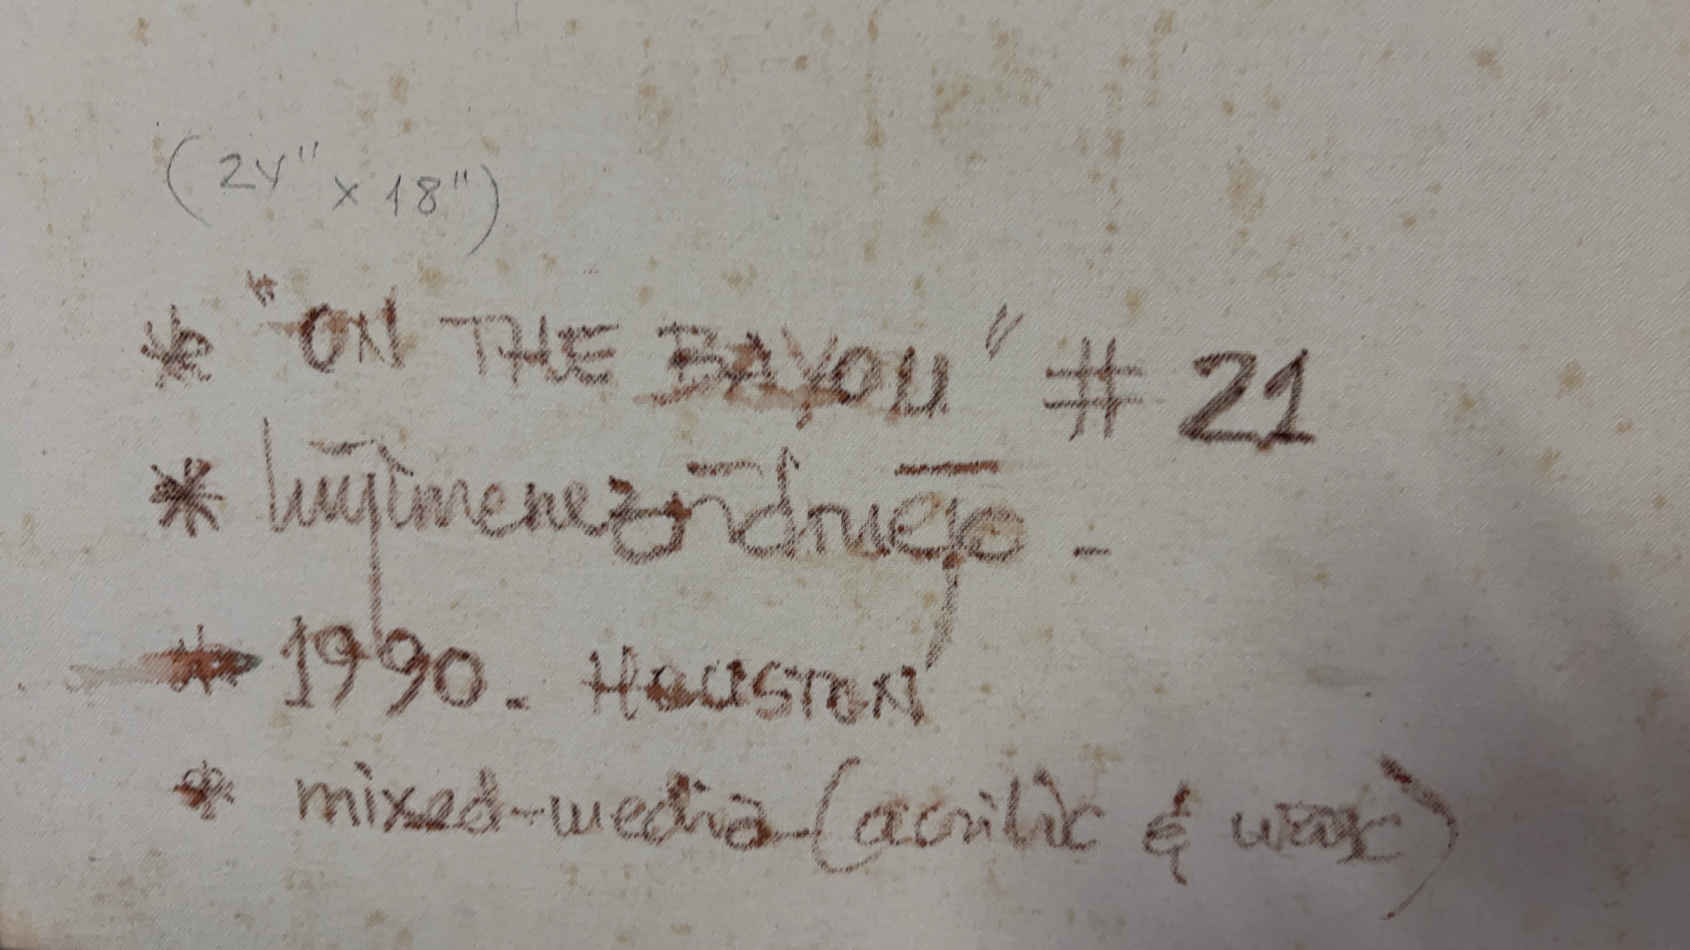 (24" x 18")
* "ON THE BAYOU" # 21
*
* 1990. HOUSTON
* mixed-media (acrilic & wax)